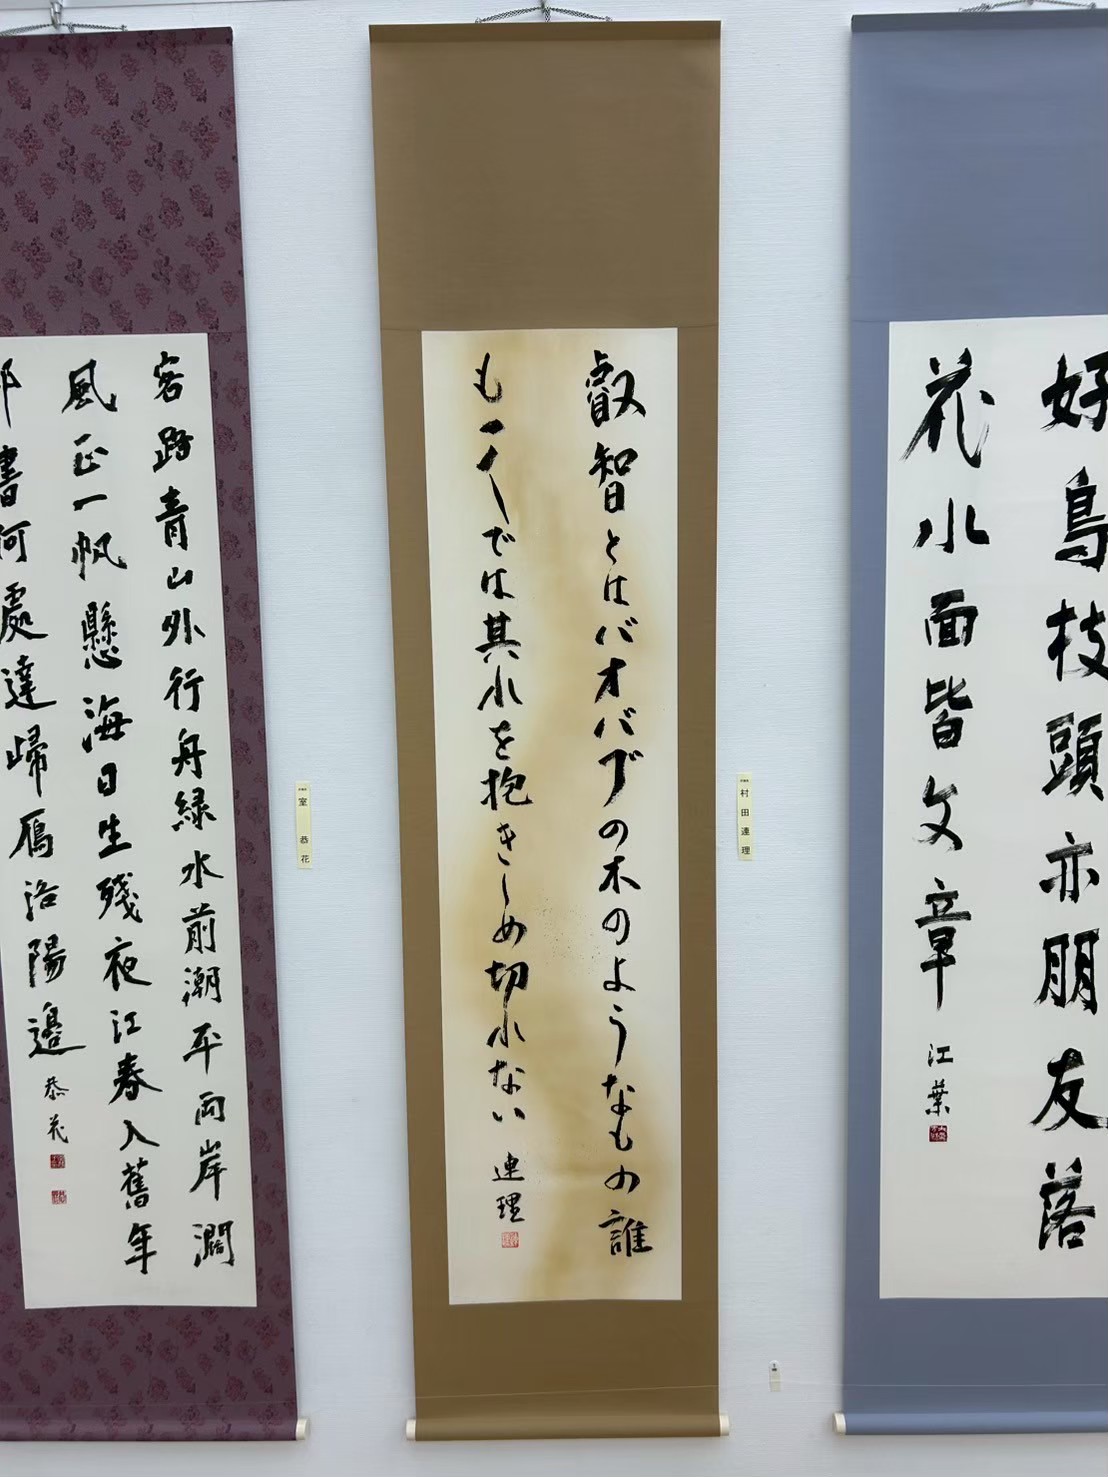 好鳥枝頭亦朋友落
花水面皆文章
江葉
村田連理
叡智とはバオバブの木のようなもの誰
も一人では其れを抱きしめ切れない
連理
室恭花
客路青山外行舟緑水前潮平両岸濶
風正一帆懸海日生殘夜江春入舊年
書何處達歸雁洛陽邊
恭花